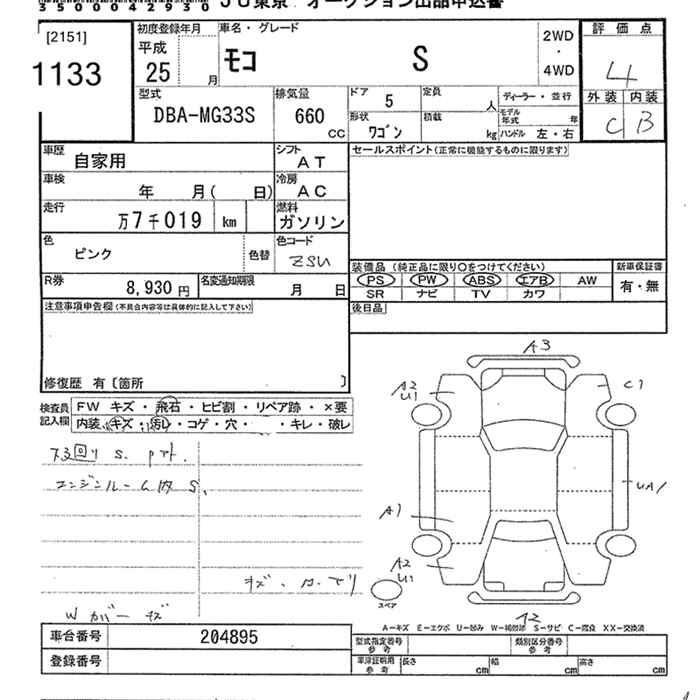 35000042930 JU東京 オークション出品申込書
[2151]
1133
初度登録年月 車名・グレード
平成
25 月
モコ S
2WD
・
4WD
評価点
4
外装 内装
C B
型式
DBA-MG33S
排気量
660
CC
ドア 5
定員 人
ディーラー・並行
形状
ワゴン
積載 kg
モデル年式 年
ハンドル 左・右
車歴
自家用
シフト
AT
セールスポイント(正常に機能するものに限ります)
車検
年 月( 日)
冷房
AC
走行
万7千019 km
燃料
ガソリン
色
ピンク
色替
色コード
ZSU
装備品 (純正品に限り〇をつけてください)
新車保証書
PS PW ABS エアB AW
有・無
SR ナビ TV カワ
R券
8,930 円
名変通知期限
月 日
後日品
注意事項申告欄(不具合内容等は具体的に記入して下さい)
修復歴 有〔箇所 〕
検査員記入欄
FW キズ・飛石・ヒビ割・リペア跡・×要
内装、キズ・汚レ・コゲ・穴・ ・キレ・破レ
エンジンルーム内 S、
Wカバーキズ
A3
A2
U1
C1
A1
UA1
A2
U1
スペア
A2
A−キズ E−エクボ U−凹み W−補修跡 S−サビ C−腐食 XX−交換済
車台番号 204895
登録番号
型式指定番号
参考
類別区分番号
参考
車庫証明用
参考
長さ cm
幅 cm
高さ cm